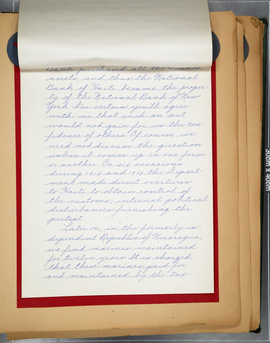 assets, and thus the National
Bank of Haiti became the proper-
ty of the National Bank of New
York. I'm certain you'll agree
with me that such an act
would not gain for us the con-
fidence of others. Of course, we
need not discuss the question
unless it comes up in one form
or another. On six occasions
during 1914 and 1915 the Depart-
ment made direct overtures
to Haiti to obtain control of
the customs, internal political
disturbances furnishing the
pretext.
Later on, in the formerly in-
dependent Republic of Nicaragua,
we find marines maintained
for twelve years. It is charged
that these marines, paid for
and maintained by the tax-